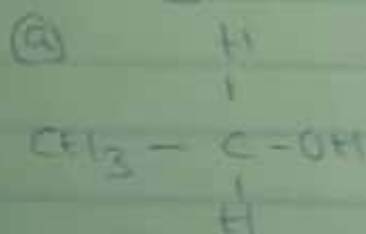 (a)
H
|
CH3 - C - OH
|
H